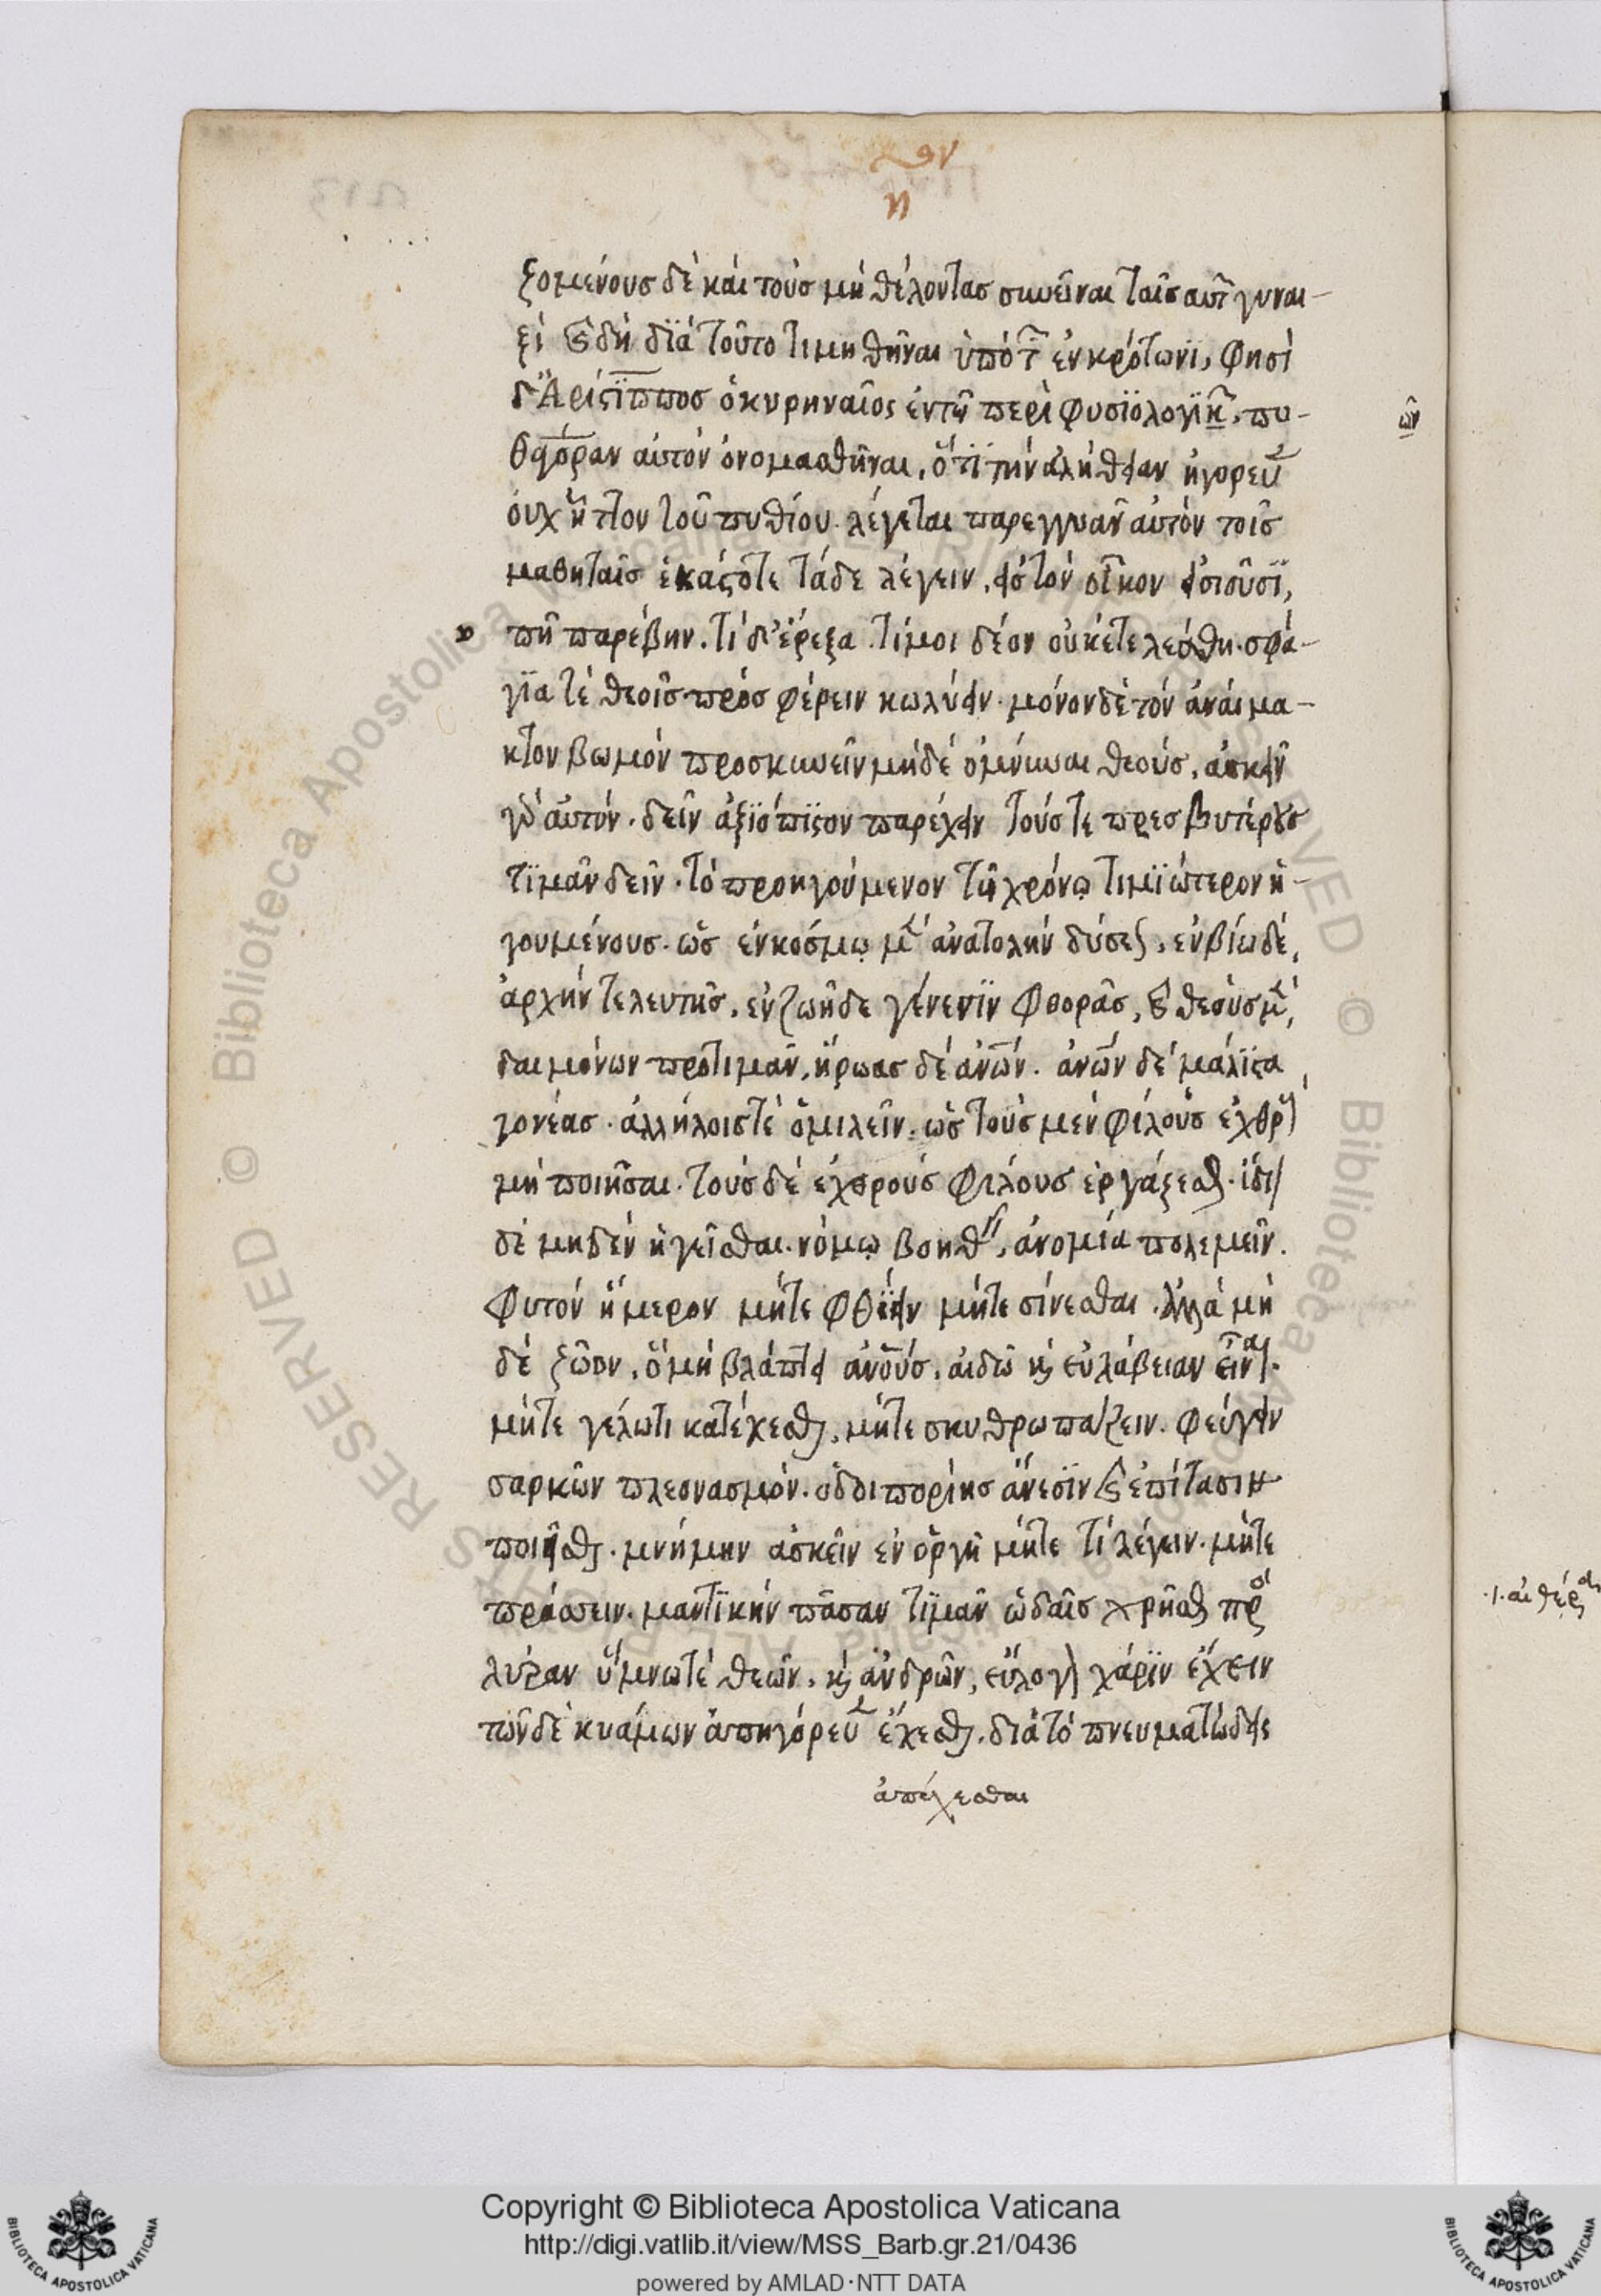 η
ζομένους δὲ καὶ τοὺς μὴ θέλοντας συνεῖναι ταῖς αὑτ γυναι-
ξί καὶ δὴ διὰ τοῦτο τιμηθῆναι ὑπὸ τ ἐν κρότωνι, φησὶ
δ' Ἀρίστιππος ὁ κυρηναῖος ἐν τῷ περὶ φυσϊολογϊκ, πυ-
θαγόραν αὐτὸν ὀνομασθῆναι, ὅτϊ τὴν ἀλήθειαν ἠγόρευ
οὐχ ἧττον τοῦ πυθίου. λέγεται παρεγγυᾶν αὐτὸν τοῖς
μαθηταῖς ἑκάστοτε τάδε λέγειν, εἰς τὸν οἶκον εἰσιοῦσϊ,
πῆ παρέβην. τί δ' ἔρεξα. τί μοι δέον οὐκ ἐτελέσθη. σφά-
γϊα τὲ θεοῖς προσφέρειν κωλύειν. μόνον δὲ τὸν ἀναίμα-
κτον βωμὸν προσκυνεῖν μηδὲ ὀμνύναι θεούς. ἀσκεῖν
γὰρ αὐτὸν. δεῖν ἀξϊόπϊστον παρέχειν τούς τε πρεσβυτέρους
τϊμᾶν δεῖν. τὸ προηγούμενον τῷ χρόνῳ τιμϊώτερον ἡ-
γουμένους. ὡς ἐν κόσμῳ μ ἀνατολὴν δύσεως, ἐν βίω δέ,
ἀρχὴν τελευτῆς, ἐν ζωῆ δε γένεσϊν φθορᾶς, καὶ θεοὺς μ,
δαιμόνων προτιμᾶν, ἥρωας δέ ἀνων. ἀνων δὲ μάλϊστα
γονέας. ἀλλήλοις τὲ ὁμιλεῖν. ὡς τοὺς μὲν φίλους ἐχθρ
μὴ ποιῆσαι. τοὺς δὲ ἐχθροὺς φίλους ἐργάζεσθαι. ἴδι
δὲ μηδὲν ἡγεῖσθαι. νόμῳ βοηθ, ἀνομία πολεμεῖν.
φυτὸν ἥμερον μήτε φθείειν μήτε σίνεσθαι. ἀλλὰ μὴ
δὲ ζῶον, ὃ μὴ βλάπτει ἀνους. αἰδῶ καὶ εὐλάβειαν εἶναι.
μήτε γέλωτι κατέχεσθαι, μήτε σκυθρωπάζειν. φεύγειν
σαρκῶν πλεονασμόν. ὁδοιπορίης ἄνεσϊν καὶ ἐπίτασιν
ποιεῖσθαι. μνήμην ἀσκεῖν ἐν ὀργῆ μήτε τί λέγειν. μήτε
πράσσειν. μαντϊκὴν πᾶσαν τϊμᾶν ὠδαῖς χρῆσθαι πρ
λύραν ὕμνω τὲ θεῶν. καὶ ἀνδρῶν, εὔλογ χάρϊν ἔχειν
τῶν δὲ κυάμων ἀπηγόρευ ἔχεσθαι. διὰ τὸ πνευματώδεις
ἀπέχεσθαι
ῶν
Copyright © Biblioteca Apostolica Vaticana
http://digi.vatlib.it/view/MSS_Barb.gr.21/0436
powered by AMLAD·NTT DATA